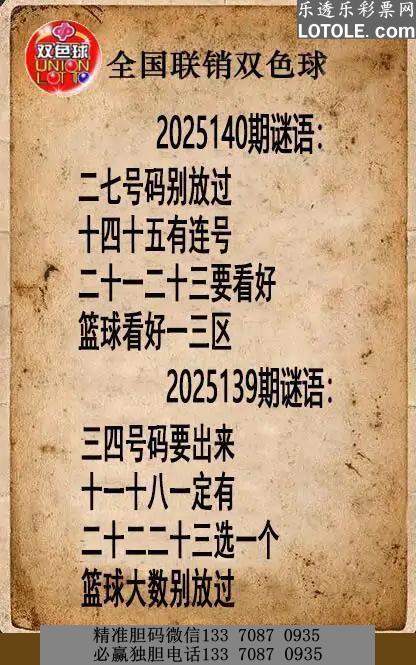 乐透乐彩票网
LOTOLE.COM
双色球
UNION
LOTTO
全国联销双色球
2025140期谜语：
二七号码别放过
十四十五有连号
二十一二十三要看好
篮球看好一三区
2025139期谜语：
三四号码要出来
十一十八一定有
二十二二十三选一个
篮球大数别放过
精准胆码微信133 7087 0935
必赢独胆电话133 7087 0935